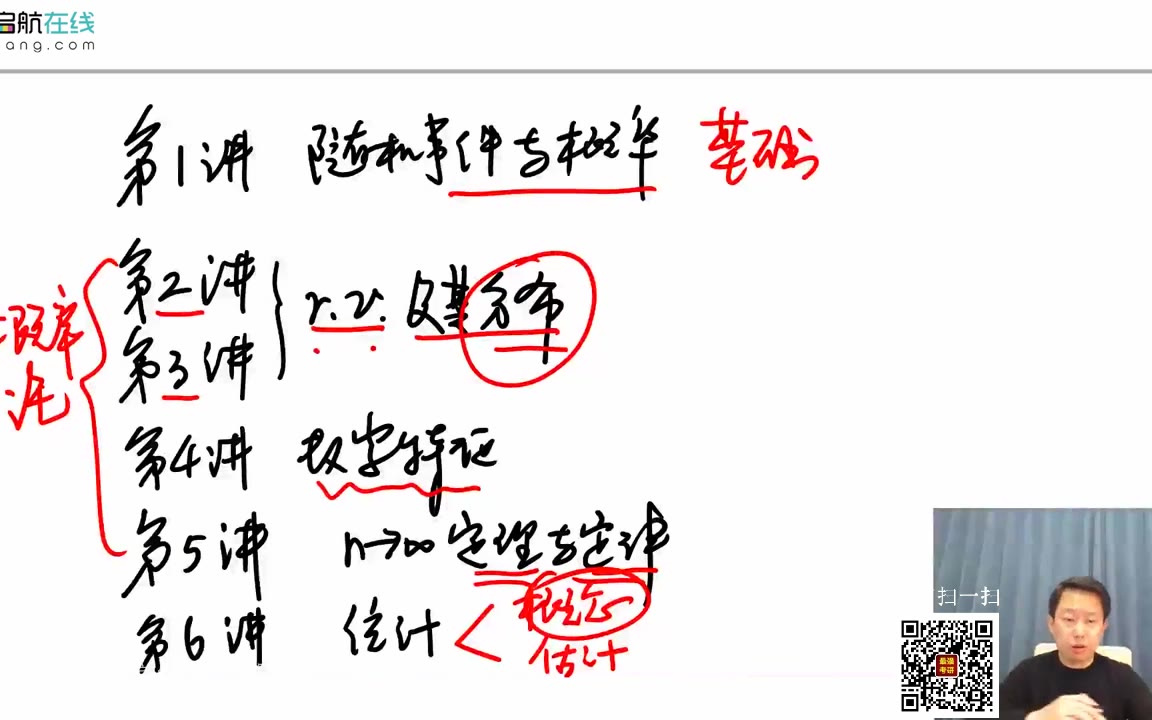 启航在线
ang.com
第1讲 随机事件与概率 基础
第2讲
r.v. 及其分布
第3讲
概率
论
第4讲 数字特征
第5讲 n→∞ 定理与定律
第6讲 估计
概念
估计
扫一扫
最强
考研